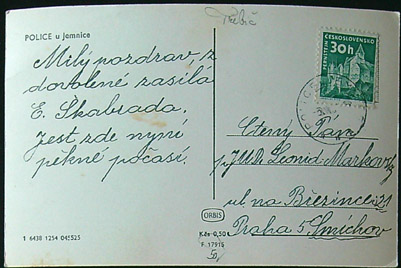 POLICE u Jemnice
Třebíč
Milý pozdrav, z
dovolené zasílá
E. Škabrada.
Jest zde nyní
pěkné počasí.
ČESKOSLOVENSKO
30h
PERNŠTEJN
Ctěný Pan
JUDr. Leonid Markov
ul na Březince 21
Praha 5 Smíchov
ORBIS
Kčs 0,50
F 17915
1 6438 1254 045525